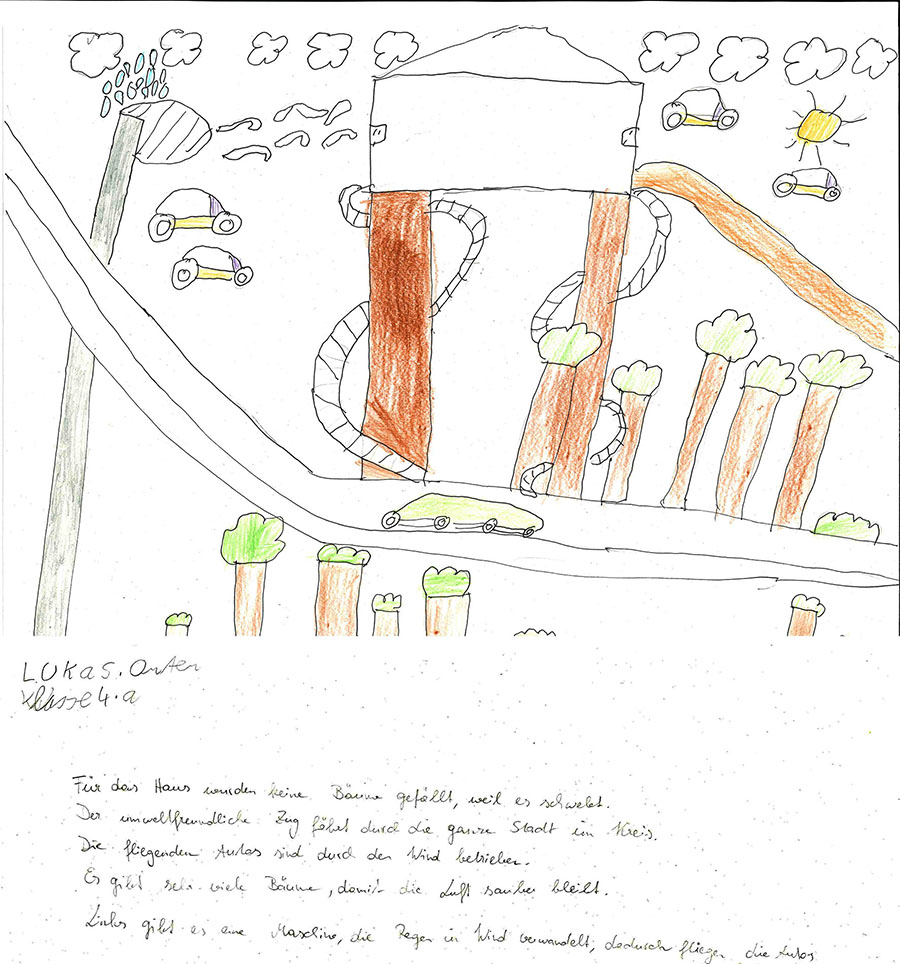 LUKaS. Anten
Klasse 4.a
Für das Haus wurden keine Bäume gefällt, weil es schwebt.
Der umweltfreundliche Zug fährt durch die ganze Stadt im Kreis.
Die fliegenden Autos sind durch den Wind betrieben.
Es gibt sehr viele Bäume, damit die Luft sauber bleibt.
Links gibt es eine Maschine, die Regen in Wind verwandelt, dadurch fliegen die Autos